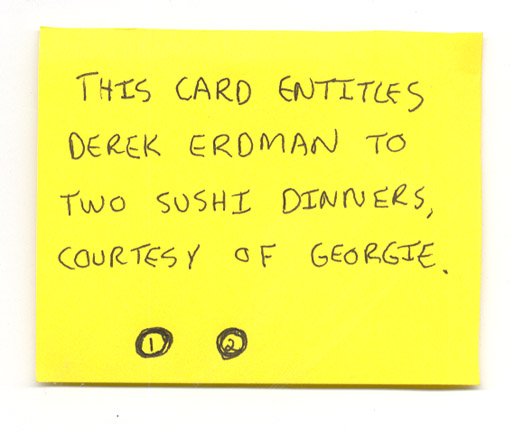 THIS CARD ENTITLES
DEREK ERDMAN TO
TWO SUSHI DINNERS,
COURTESY OF GEORGIE.
1 2